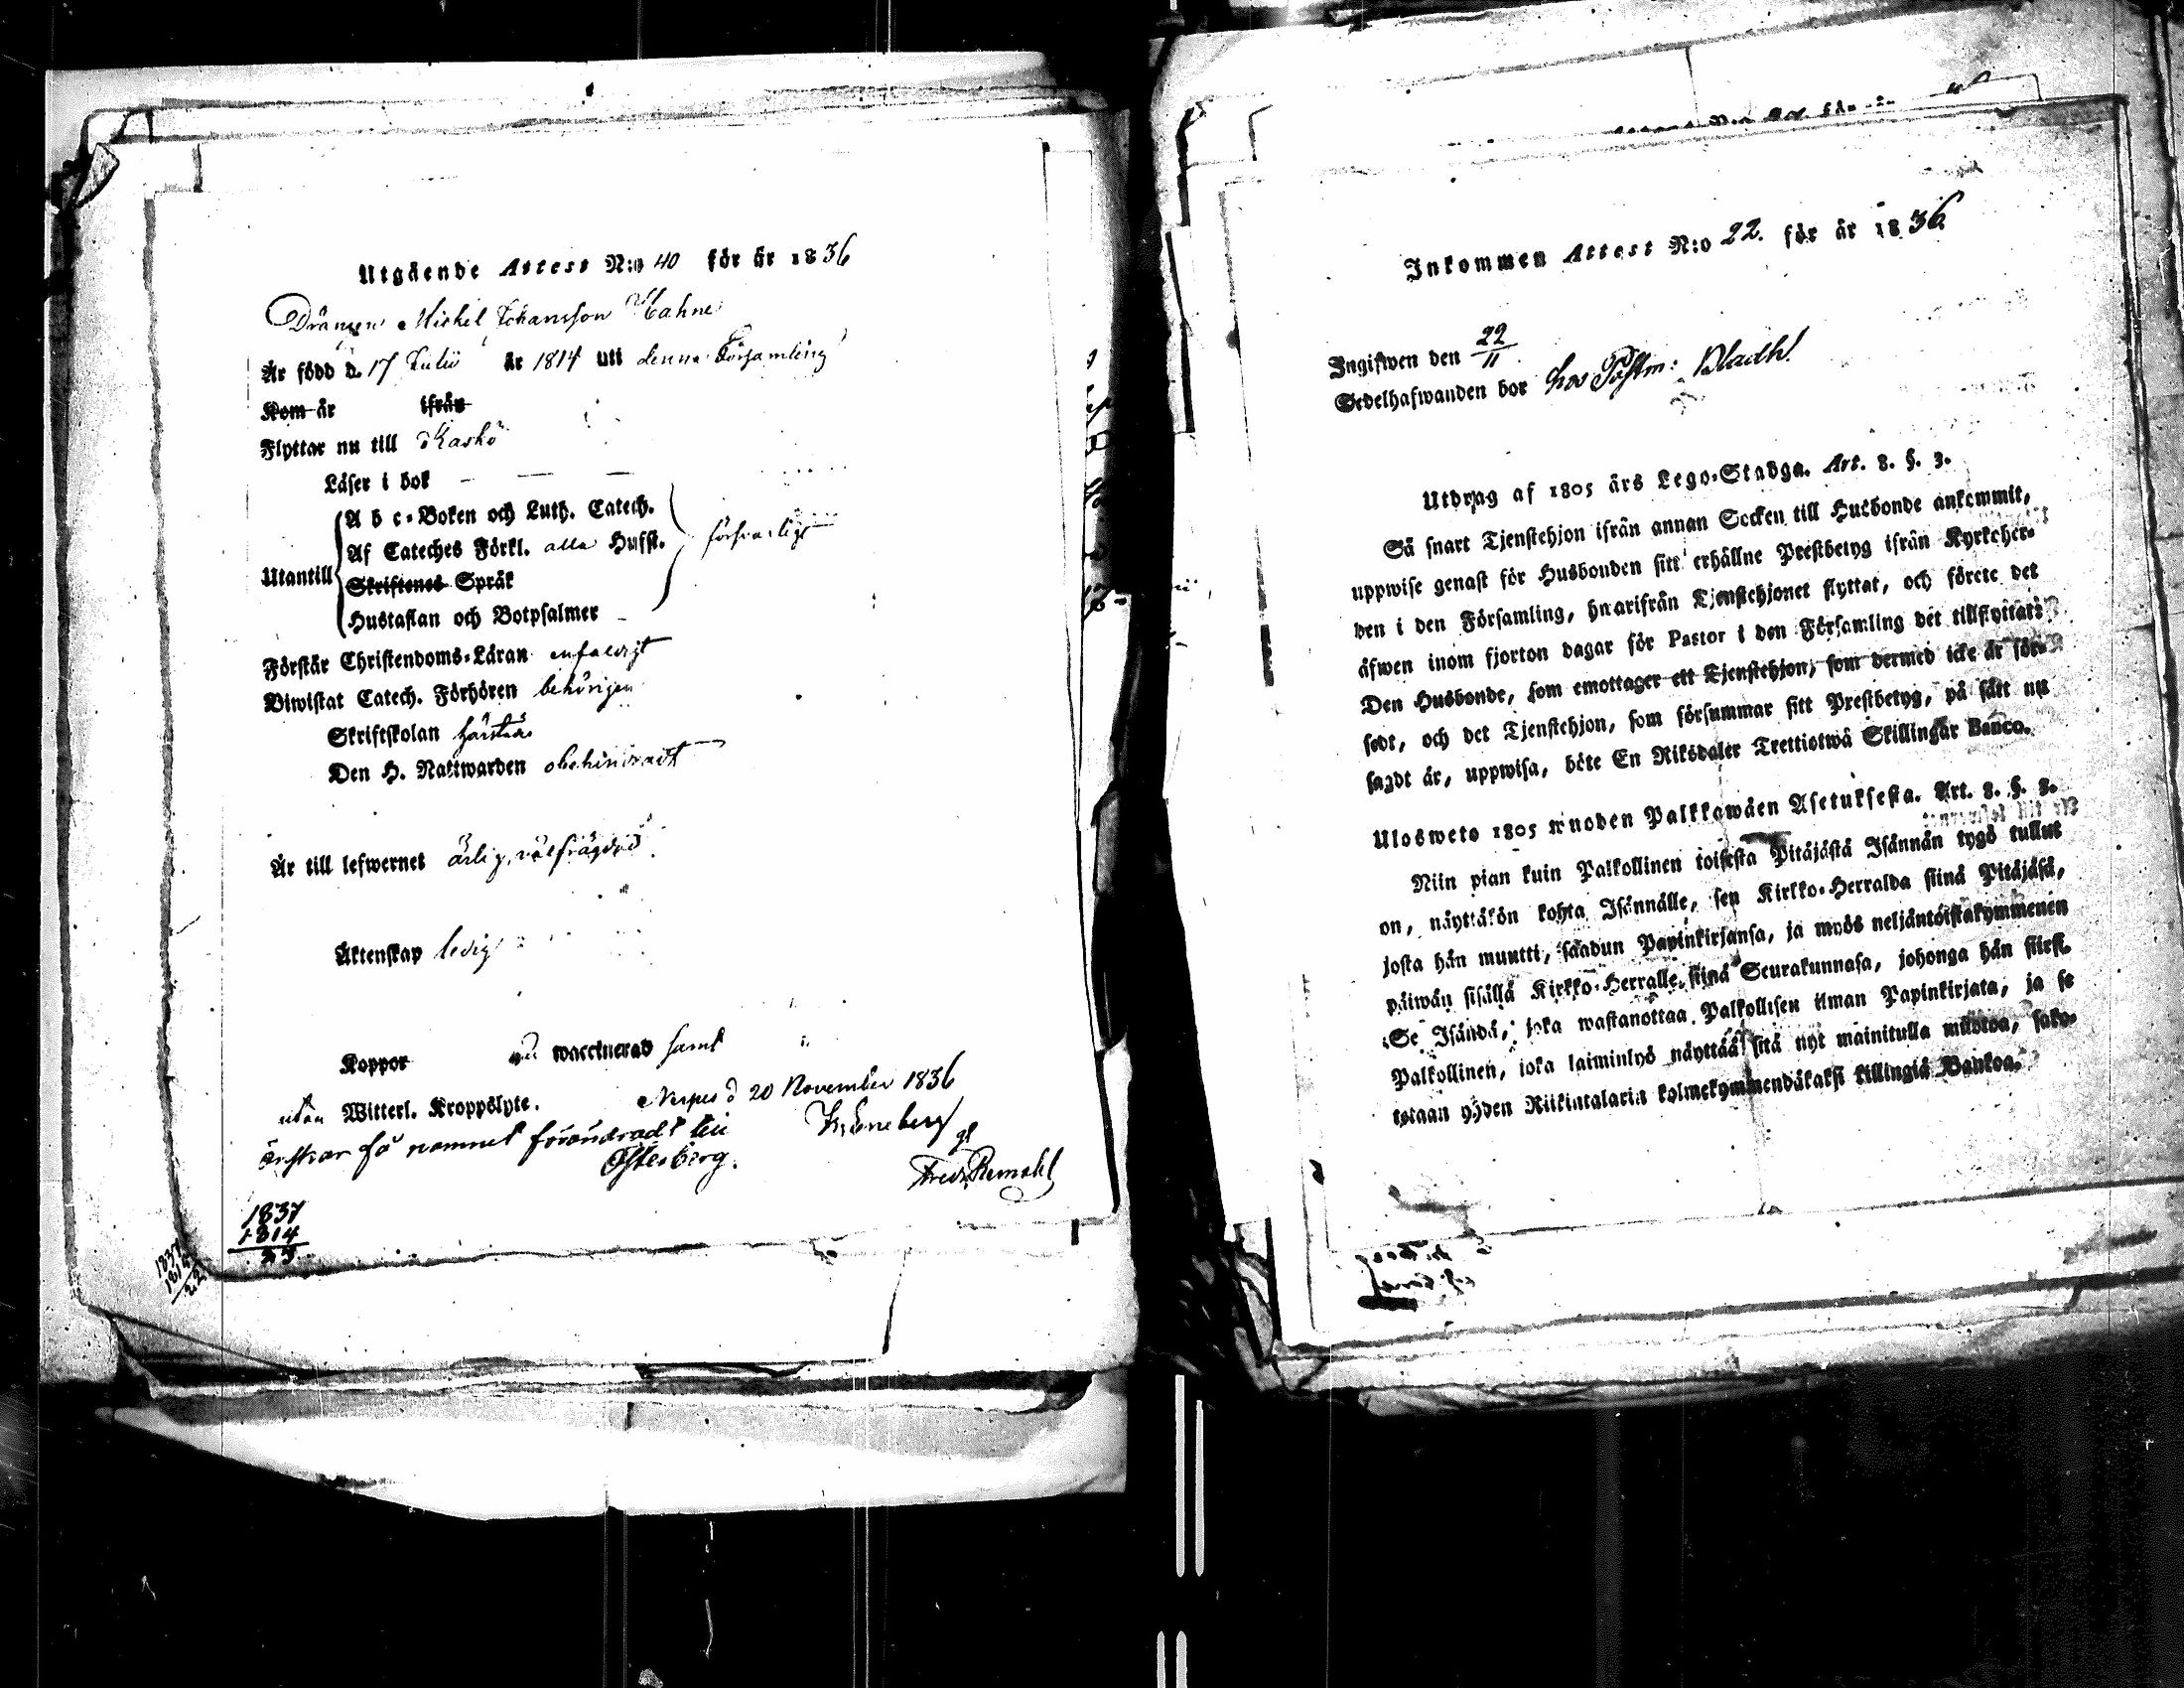 Utgående Attest N:o 40 för år 1836
Drängen Michel Johansson Hahne
Är född d. 17 Julii år 1814 uti denna Församling
Kom år ifrån
Flyttar nu till Kaskö
Läser i bok
Utantill
A b c-Boken och Luth. Catech.
Af Cateches Förkl. alla Hufst.
försvarligt
Skriftenes Språk
Hustaflan och Botpsalmer
Förstår Christendoms-Läran enfaldigt
Biwistat Catech. Förhören behörigen
Skriftskolan härstädes
Den H. Nattwarden obehindradt
Är till lefwernet ärlig, välfrägdad
Äktenskap ledig
Koppor waccinerad samt
utan Witterl. Kroppslyte. Nerpes d 20 November 1836
önskar få namnet förändradt till
Österberg.
Fredr. Remahl
1837
1814
23
1837
1814
Inkommen Attest N:o 22. för år 1836
Ingifwen den 22/11
Sedelhafwanden bor hos Postm: Bladh!
Utdrag af 1805 års Lego-Stadga. Art. 8. §. 3.
Så snart Tjenstehjon ifrån annan Socken till Husbonde ankommit,
uppwise genast för Husbonden sitt erhållne Prestbetyg ifrån Kyrkoher-
den i den Församling, hwarifrån Tjenstehjonet flyttat, och förete det
äfwen inom fjorton dagar för Pastor i den Församling det tillflyttat:
Den Husbonde, som emottager ett Tjenstehjon, som dermed icke är för-
sedt, och det Tjenstehjon, som försummar sitt Prestbetyg, på sätt nu
sagdt är, uppwisa, böte En Riksdaler Trettiotwå Skillingar Banco.
Ulosweto 1805 wuoden Palkkawäen Asetuksesta. Art. 8. §. 3.
Niin pian kuin Palkollinen toisesta Pitäjästä Isännän tygö tullut
on, näyttäkön kohta Isännälle, sen Kirkko-Herralda siinä Pitäjäsä,
josta hän muutti, saadun Papinkirjansa, ja myös neljäntoistakymmenen
päiwän sisällä Kirkko-Herralle siinä Seurakunnasa, johonga hän siirsi.
Se Isändä, joka wastanottaa Palkollisen ilman Papinkirjata, ja se
Palkollinen, joka laiminlyö näyttää sitä nyt mainitulla muotoa, sako-
tetaan yhden Riikintalarin kolmekymmendäkaksi killingiä Bankoa.